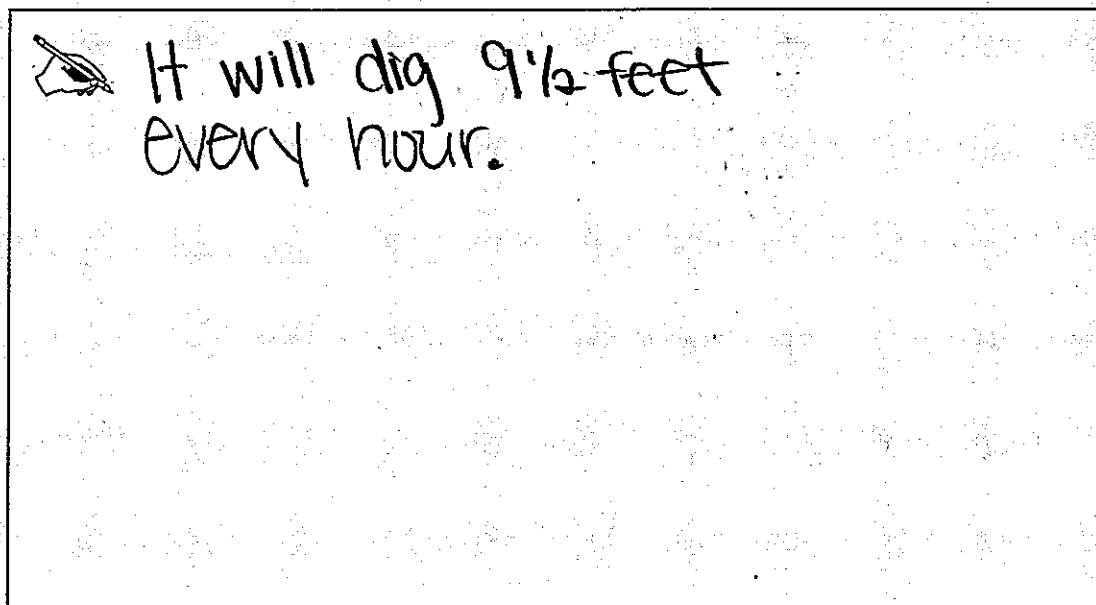 It will dig 9 1/2 feet
every hour.